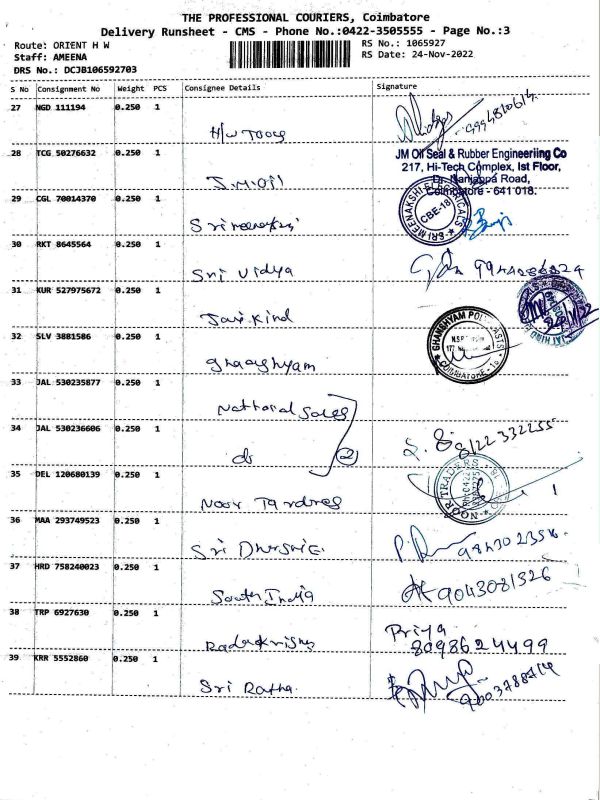 THE PROFESSIONAL COURIERS, Coimbatore
Delivery Runsheet - CMS - Phone No.:0422-3505555 - Page No.:3
Route: ORIENT H W
RS No.: 1065927
Staff: AMEENA
RS Date: 24-Nov-2022
DRS No.: DCJB106592703
S No Consignment No Weight PCS Consignee Details Signature
27 NGD 111194 0.250 1
H/W Tools
28 TCG 50276632 0.250 1
J.M.Oil
JM Oil Seal & Rubber Engineeriing Co
217, Hi-Tech Complex, Ist Floor,
Dr. Nanjappa Road,
Coimbatore - 641 018.
29 CGL 70014370 0.250 1
SRI MEENAKSHI ELECTRICALS
CBE-18
30 RKT 8645564 0.250 1
Sri Vidya
31 KUR 527975672 0.250 1
Jai Hind
32 SLV 3881586 0.250 1
GHANSHYAM
COIMBATORE
33 JAL 530235877 0.250 1
National Sales
34 JAL 530236606 0.250 1
do 2
8122332255
35 DEL 120680139 0.250 1
Noor
NOOR TRADERS
36 MAA 293749523 0.250 1
Sri
37 HRD 758240023 0.250 1
South India
9043081326
38 TRP 6927630 0.250 1
Radhakrishna
Priya
8098624499
39 KRR 5552860 0.250 1
Sri Ratha
9003788714